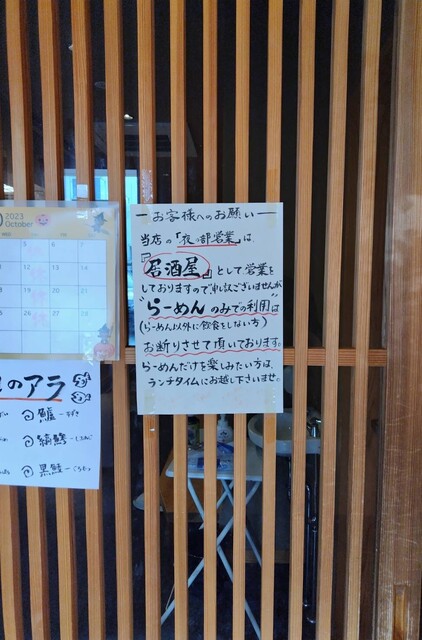 ーお客様へのお願いー
当店の「夜の部営業」は、
『居酒屋』として営業を
しておりますので申し訳ございませんが
"らーめんのみでの利用"は
(らーめん以外に飲食をしない方)
お断りさせて頂いております。
らーめんだけを楽しみたい方は、
ランチタイムにお越し下さいませ。
2023
October
5 6 7
12 13 14
19 20 21
26 27 28
のアラ
鱸ーすずき